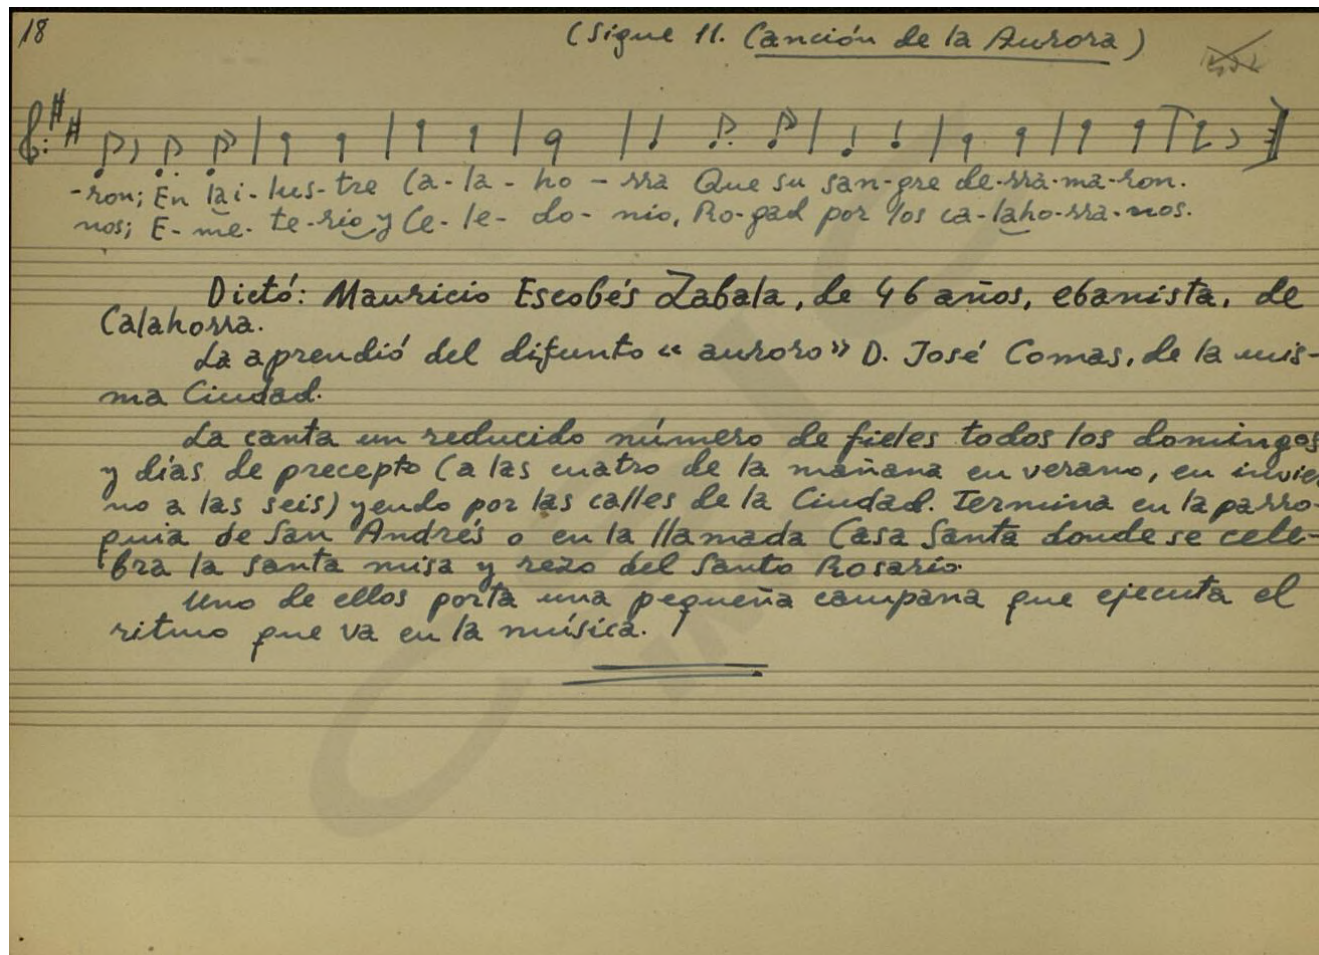 18
(Sigue 11. Canción de la Aurora)
-ron; En la i-lus-tre Ca-la-ho-rra Que su san-gre de-rra-ma-ron.
nos; E-me-te-rio y Ce-le-do-nio, Ro-gad por los ca-laho-rra-nos.
Dictó: Mauricio Escobés Zabala, de 46 años, ebanista, de
Calahorra.
La aprendió del difunto «auroro» D. José Comas, de la mis-
ma Ciudad.
La canta un reducido número de fieles todos los domingos
y días de precepto (a las cuatro de la mañana en verano, en invier
no a las seis) yendo por las calles de la Ciudad. Termina en la parro-
quia de San Andrés o en la llamada Casa Santa donde se cele-
bra la santa misa y rezo del Santo Rosario.
Uno de ellos porta una pequeña campana que ejecuta el
ritmo que va en la música.